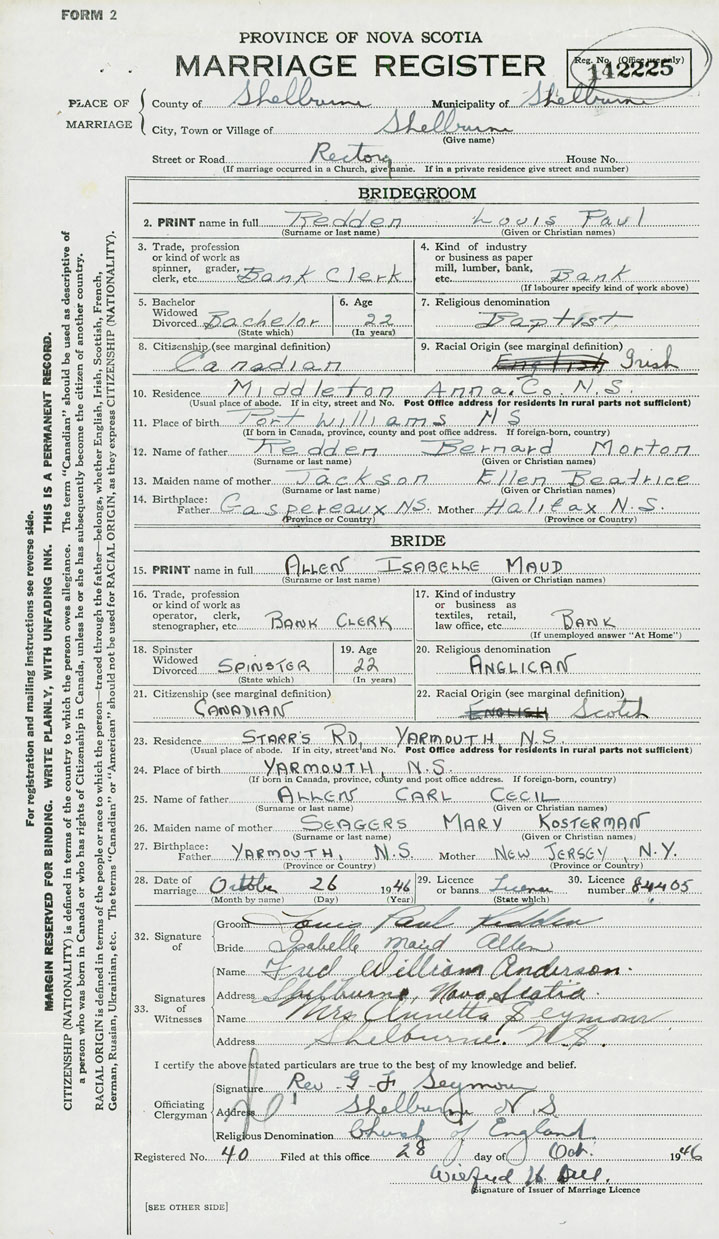 FORM 2
PROVINCE OF NOVA SCOTIA
MARRIAGE REGISTER
Reg. No. (Office use only)
142225
PLACE OF MARRIAGE
County of Shelburne Municipality of Shelburne
City, Town or Village of Shelburne
(Give name)
Street or Road Rectory House No.
(If marriage occurred in a Church, give name. If in a private residence give street and number)
BRIDEGROOM
2. PRINT name in full Redden Louis Paul
(Surname or last name) (Given or Christian names)
3. Trade, profession or kind of work as spinner, grader, clerk, etc. Bank Clerk
4. Kind of industry or business as paper mill, lumber, bank, etc. Bank
(If labourer specify kind of work above)
5. Bachelor Widowed Divorced Bachelor
(State which)
6. Age 22
(In years)
7. Religious denomination Baptist
8. Citizenship (see marginal definition) Canadian
9. Racial Origin (see marginal definition) English Irish
10. Residence Middleton Anna. Co. N.S.
(Usual place of abode. If in city, street and No. Post Office address for residents in rural parts not sufficient)
11. Place of birth Port Williams N S
(If born in Canada, province, county and post office address. If foreign-born, country)
12. Name of father Redden Bernard Morton
(Surname or last name) (Given or Christian names)
13. Maiden name of mother Jackson Ellen Beatrice
(Surname or last name) (Given or Christian names)
14. Birthplace: Father Gaspereaux NS. Mother Halifax N.S.
(Province or Country) (Province or Country)
BRIDE
15. PRINT name in full ALLEN ISABELLE MAUD
(Surname or last name) (Given or Christian names)
16. Trade, profession or kind of work as operator, clerk, stenographer, etc. BANK CLERK
17. Kind of industry or business as textiles, retail, law office, etc. BANK
(If unemployed answer "At Home")
18. Spinster Widowed Divorced SPINSTER
(State which)
19. Age 22
(In years)
20. Religious denomination ANGLICAN
21. Citizenship (see marginal definition) CANADIAN
22. Racial Origin (see marginal definition) ENGLISH Scotch
23. Residence STARR'S RD, YARMOUTH, N.S.
(Usual place of abode. If in city, street and No. Post Office address for residents in rural parts not sufficient)
24. Place of birth YARMOUTH, N.S.
(If born in Canada, province, county and post office address. If foreign-born, country)
25. Name of father ALLEN CARL CECIL
(Surname or last name) (Given or Christian names)
26. Maiden name of mother SEAGERS MARY KOSTERMAN
(Surname or last name) (Given or Christian names)
27. Birthplace: Father YARMOUTH, N.S. Mother NEW JERSEY, N.Y.
(Province or Country) (Province or Country)
28. Date of marriage October 26 1946 29. Licence or banns License 30. Licence number 84405
(Month by name) (Day) (Year) (State which)
32. Signature of
Groom Louis Paul Redden
Bride Isabelle Maud Allen
33. Signatures of Witnesses
Name Fred William Anderson.
Address Shelburne, Nova Scotia.
Name Mrs Annetta Seymour
Address Shelburne. N.S.
I certify the above stated particulars are true to the best of my knowledge and belief.
Officiating Clergyman
Signature Rev G F Seymour
Address Shelburne N.S
Religious Denomination Church of England.
Registered No. 40 Filed at this office 28 day of Oct. 1946
Wilfred H. Dell.
Signature of Issuer of Marriage Licence
[SEE OTHER SIDE]
For registration and mailing instructions see reverse side.
MARGIN RESERVED FOR BINDING. WRITE PLAINLY, WITH UNFADING INK. THIS IS A PERMANENT RECORD.
CITIZENSHIP (NATIONALITY) is defined in terms of the country to which the person owes allegiance. The term "Canadian" should be used as descriptive of
a person who was born in Canada or who has rights of Citizenship in Canada, unless he or she has subsequently become the citizen of another country.
RACIAL ORIGIN is defined in terms of the people or race to which the person—traced through the father—belongs, whether English, Irish, Scottish, French,
German, Russian, Ukrainian, etc. The terms "Canadian" or "American" should not be used for RACIAL ORIGIN, as they express CITIZENSHIP (NATIONALITY).